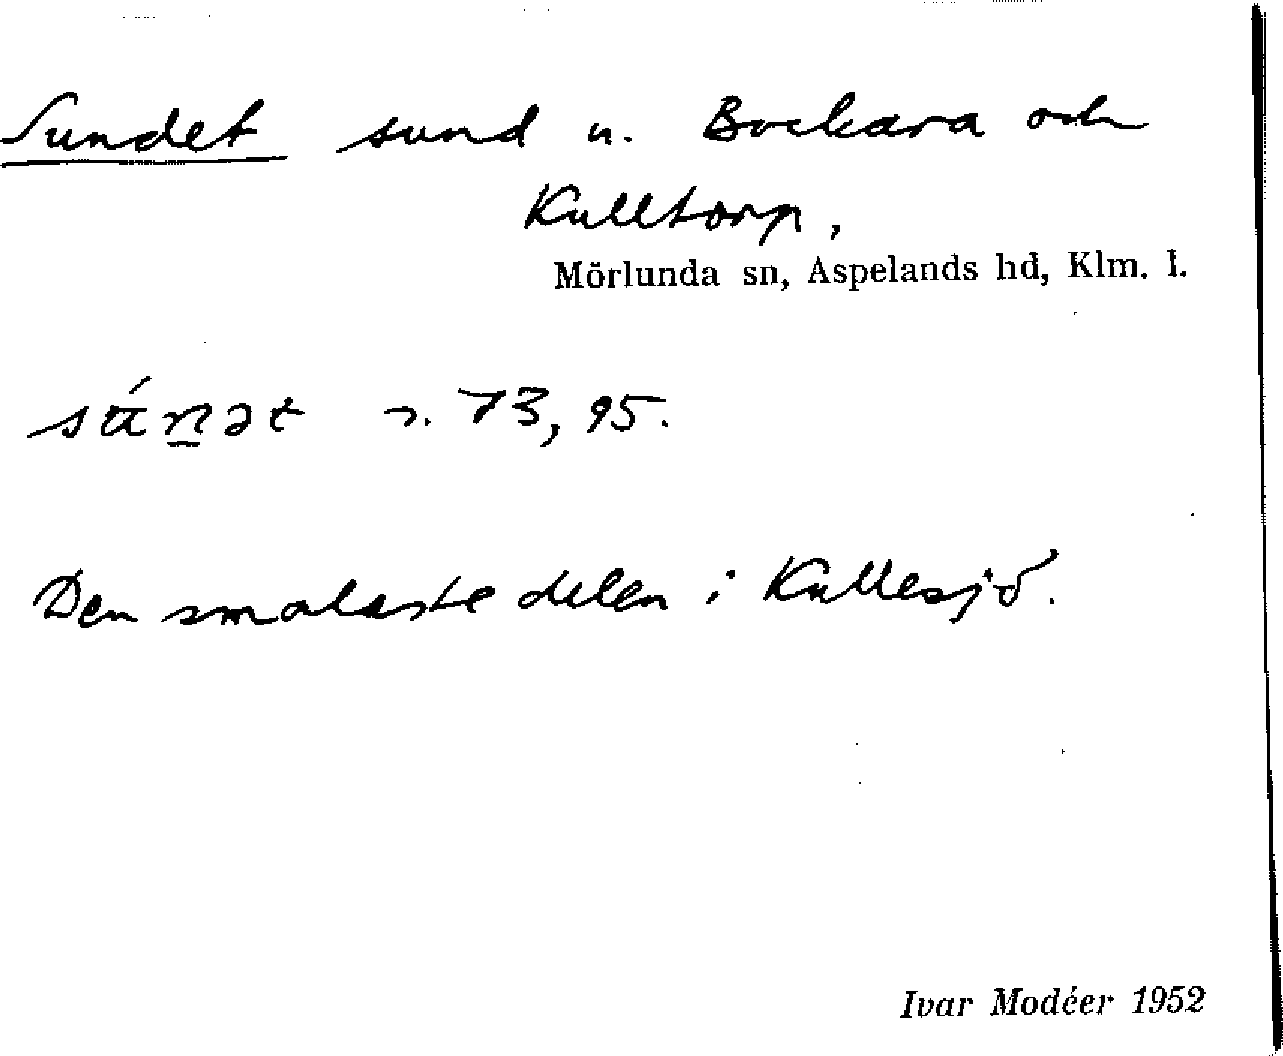 Sundet sund u. Bockara och
Kulltorp,
Mörlunda sn, Aspelands hd, Klm. l.
73, 95.
Den smalaste delen i Kullesjö.
Ivar Modéer 1952